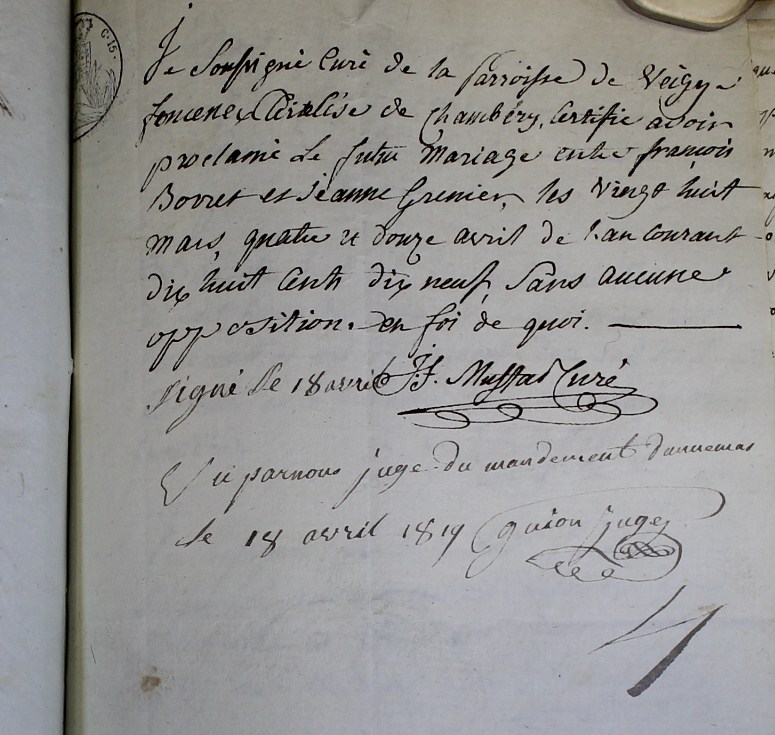 Je Soussigné Curé de la parroisse de Veigy
foncenex Diocèse de Chambéry, Certifie avoir
proclamé le futur Mariage entre françois
Bovret et Jéanne Grenier, les Vingt huit
mars, quatre et douze avril de l'an Courant
dix huit Cents dix neuf, Sans aucune
opposition. en foi de quoi.
signé le 18 avril J.F. Curé
Vu par nous juge du mandement d'annemas
le 18 avril 1819 Guion juge
C. 15.